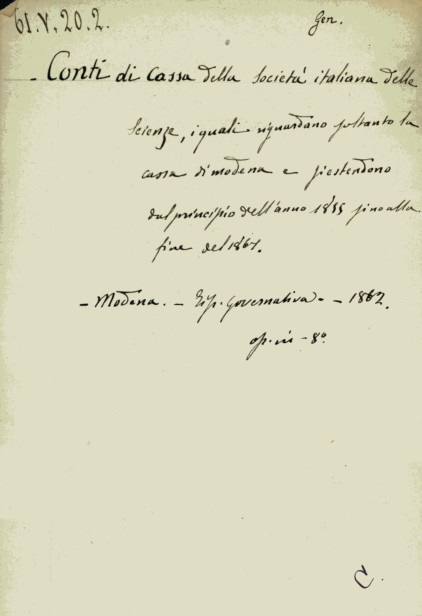 61.V.20.2.
Gen.
- Conti di cassa della Società italiana delle
Scienze, i quali riguardano soltanto la
cassa di Modena e si estendono
dal principio dell'anno 1855 sino alla
fine del 1861.
- Modena. - Tip. governativa. - 1862.
op. in - 8°
C